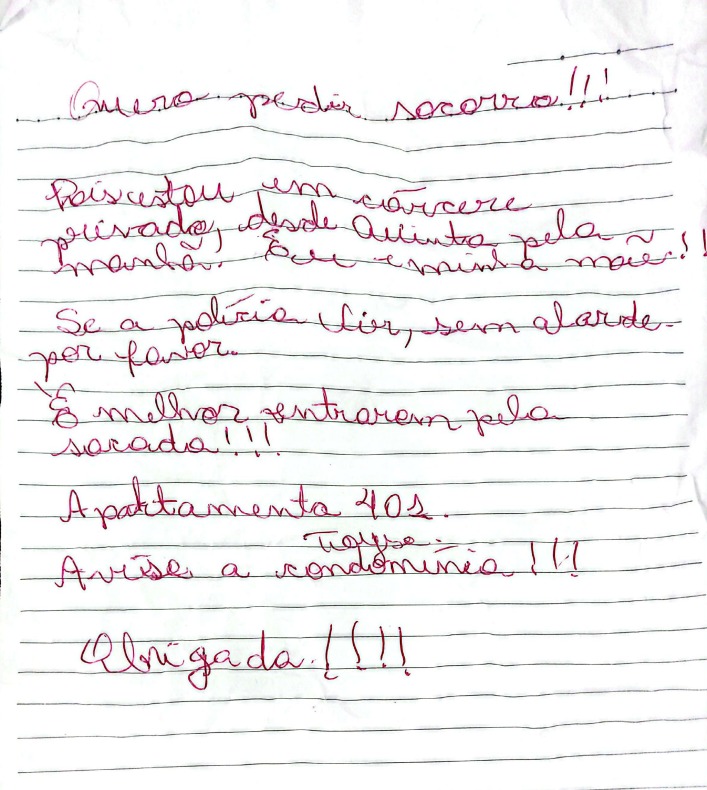 Quero pedir socorro!!!
Pois estou em cárcere
privado, desde Quinta pela
manhã. Eu e minha mãe!!
Se a polícia vier, sem alarde
por favor.
É melhor entrarem pela
sacada!!!
Apartamento 401.
Avise a condomínio!!!
Obrigada!!!!